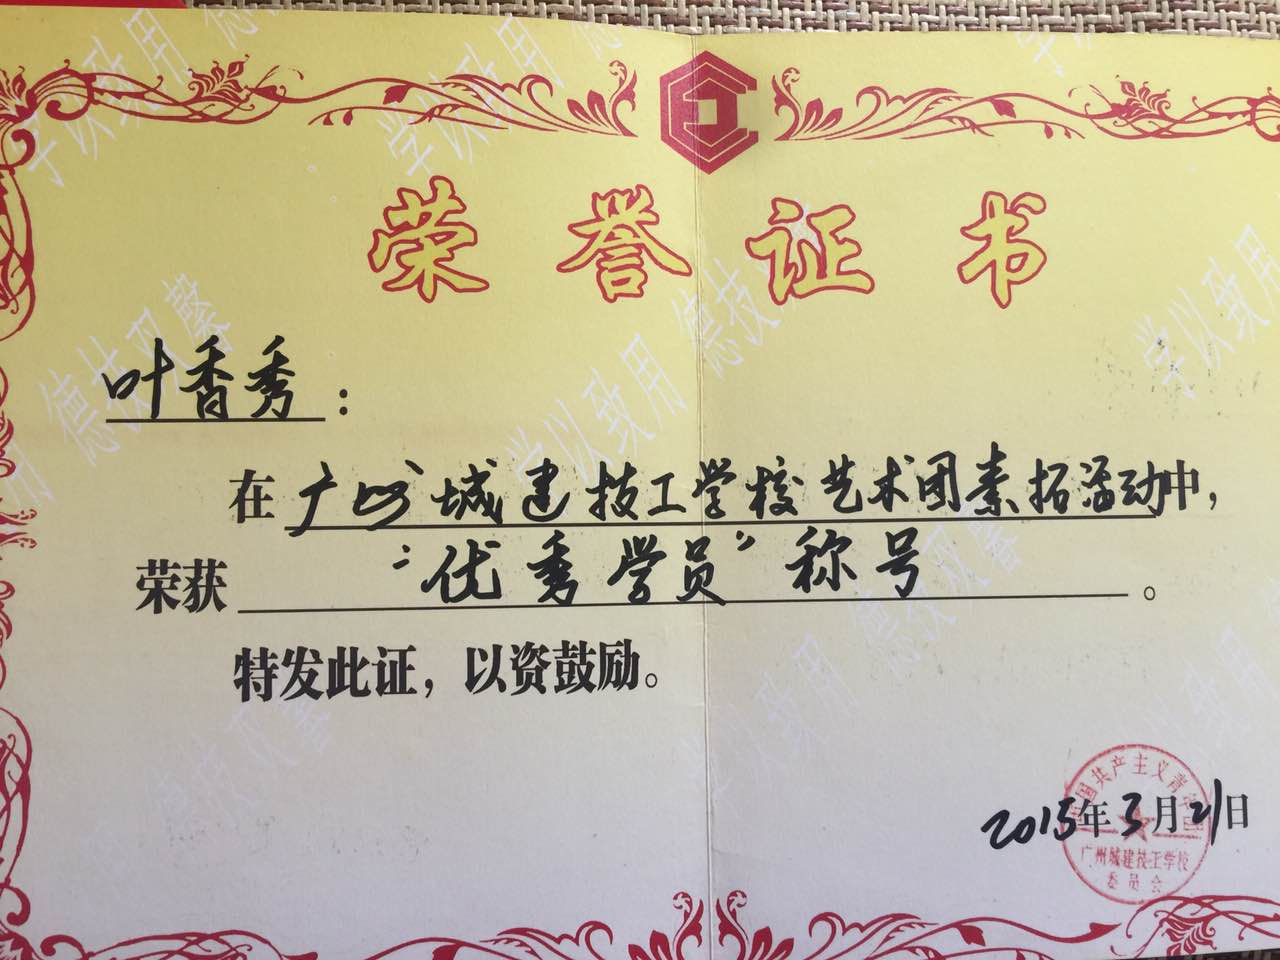 荣誉证书
叶香秀：
在广州城建技工学校艺术团素拓活动中，
荣获“优秀学员”称号。
特发此证，以资鼓励。
2015年3月21日
中国共产主义青年团
广州城建技工学校
委员会
学以致用 德技双馨